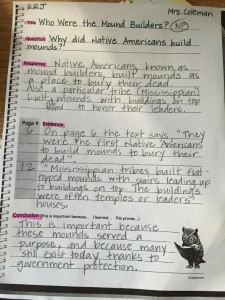 RRJ
Mrs. Coleman
Title: Who Were the Mound Builders? (NF)
Question: Why did Native Americans build
mounds?
Response: Native Americans, known as
mound builders, built mounds as
a place to bury their dead.
Also a particular tribe (Mississippian)
built mounds with buildings on top
to honor their leaders.
Page # Evidence
6 On page 6 the text says, "They
were the first Native Americans
to build mounds to bury their
dead."
12 "Mississippian tribes built flat-
topped mounds with stairs leading up
to buildings on top. The buildings
were often temples or leaders'
houses.
Conclusion (This is important because... I learned... This proves...)
This is important because
these mounds served a
purpose, and because many
still exist today thanks to
government protection.